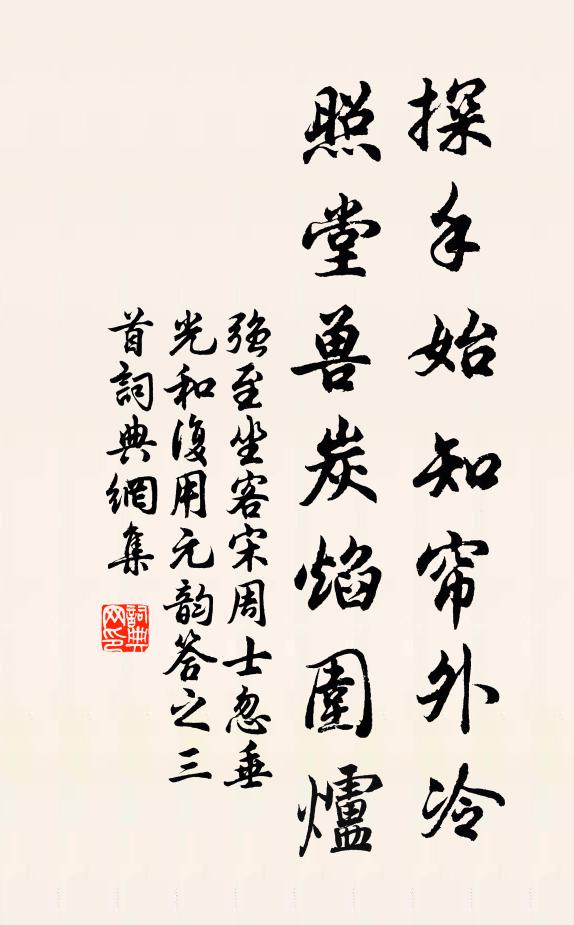 探手始知帘外冷
照堂兽炭焰圍爐
強至坐客宋周士忽垂
光和復用元韵答之三
首詞典網集
詞典网印